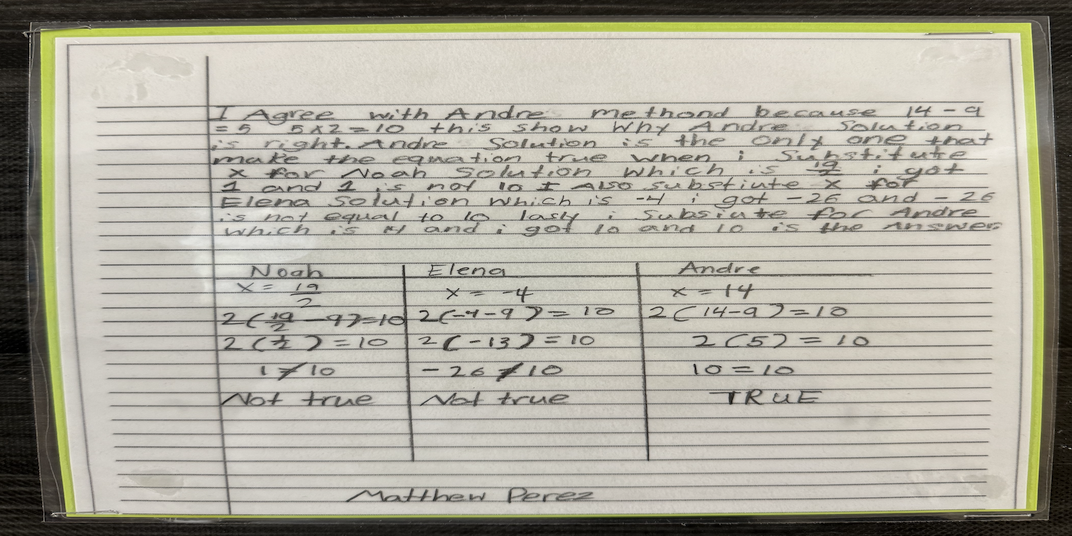 I Agree with Andre methond because 14 - 9
= 5 5x2=10 this show Why Andre Solution
is right. Andre Solution is the only one that
make the equation true when i Substitute
x for Noah Solution which is 19/2 i got
1 and 1 is not 10 I Also substiute x for
Elena Solution which is -4 i got -26 and -26
is not equal to 10 lasly i Subsiute for Andre
which is 14 and i got 10 and 10 is the Answer
Noah Elena Andre
x = 19/2 x = -4 x = 14
2(19/2 - 9)=10 2(-4-9)=10 2(14-9)=10
2(1/2)=10 2(-13)=10 2(5)=10
1≠10 -26≠10 10=10
Not true Not true TRUE
Matthew Perez